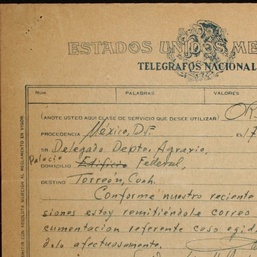 ESTADOS UNIDOS ME
TELEGRAFOS NACIONAL
Núm. PALABRAS VALORES
ANOTE USTED AQUI CLASE DE SERVICIO QUE DESEE UTILIZAR OR
PROCEDENCIA México, D.F.
Sr. Delegado Depto. Agrario,
Palacio
DOMICILIO Edificio Federal,
DESTINO Torreón, Coah.
Conforme nuestra reciente
siones estoy remitiéndole correo
cumentación referente caso egid
dolo afectuosamente.